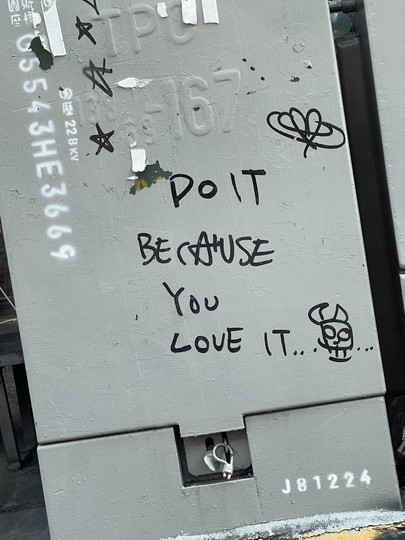 TPC
-167
0554 3HE3669
22.8KV
DO IT
BECAUSE
YOU
LOVE IT.. ...
J81224